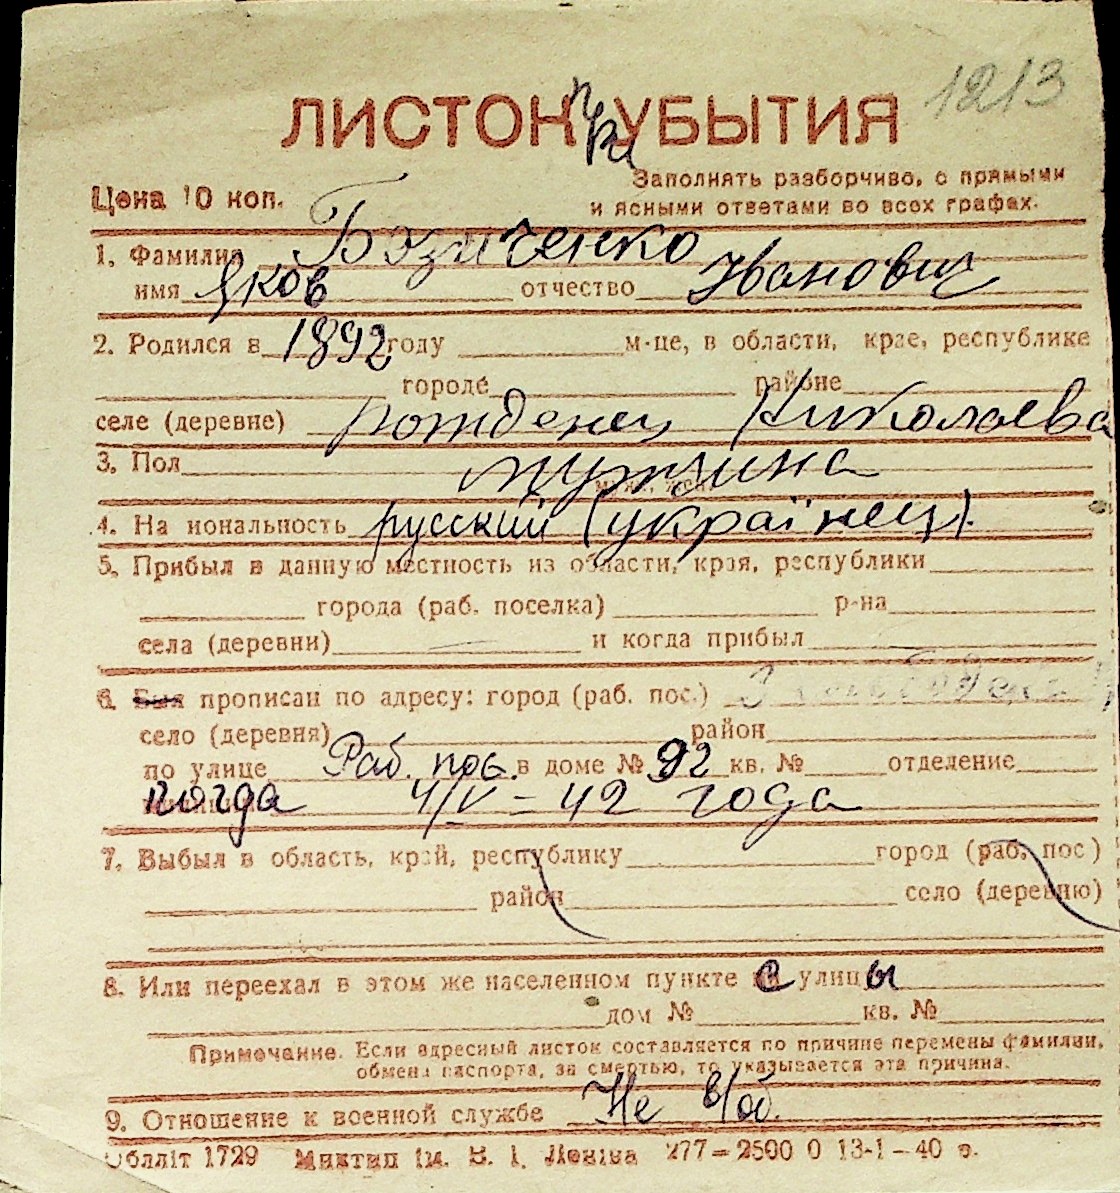 1213
ЛИСТОК при УБЫТИЯ
Цена 10 коп.
Заполнять разборчиво, с прямыми
и ясными ответами во всех графах.
1. Фамилия Бозиченко
имя Яков отчество Иванович
2. Родился в 1892 году м-це, в области, крае, республике
городе районе
селе (деревне) рожденец Николаева
3. Пол мужчина
4. На иональность русский (українец).
5. Прибыл в данную местность из области, края, республики
города (раб. поселка) р-на
села (деревни) — и когда прибыл
6. Был прописан по адресу: город (раб. пос.)
село (деревня) район
по улице Раб. пос. в доме № 92 кв. № отделение
когда 4/IV – 42 года
7. Выбыл в область, край, республику город (раб. пос)
район село (деревню)
8. Или переехал в этом же населенном пункте с улицы
дом № кв. №
Примечание. Если адресный листок составляется по причине перемены фамилии,
обмена паспорта, за смертью, то указывается эта причина.
9. Отношение к военной службе Не в/об.
Облліт 1729 Миктип ім. В. І. Леніна 277–2500 0 13-1–40 г.